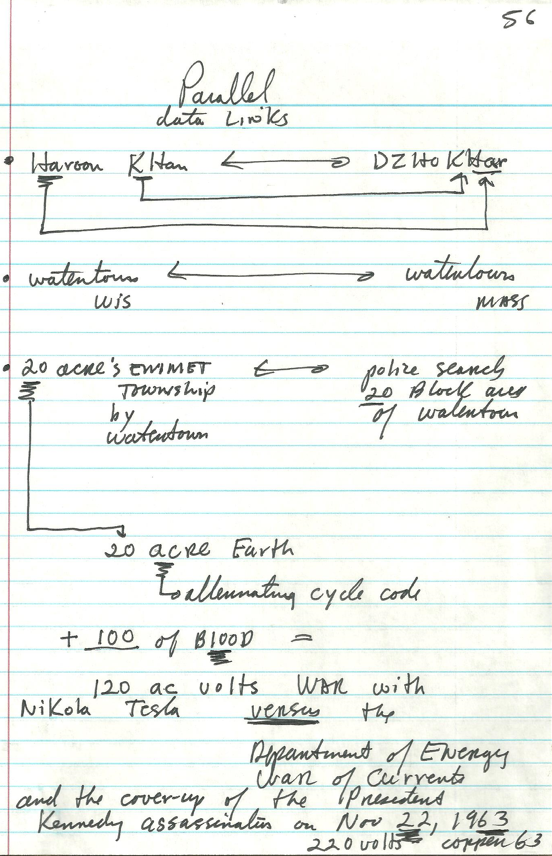 56
Parallel
data Links
• Haroon KHan ↔ DZHoKHar
• watertown ↔ watertown
WIS MASS
• 20 acre's EMMET ↔ police search
Township 20 Block area
by of watertown
watertown
20 acre Earth
alternating cycle code
+ 100 of BlOOD =
120 ac volts WAR with
Nikola Tesla versus the
Department of Energy
War of Currents
and the cover-up of the President
Kennedy assassination on Nov 22, 1963
220 volts copper 63